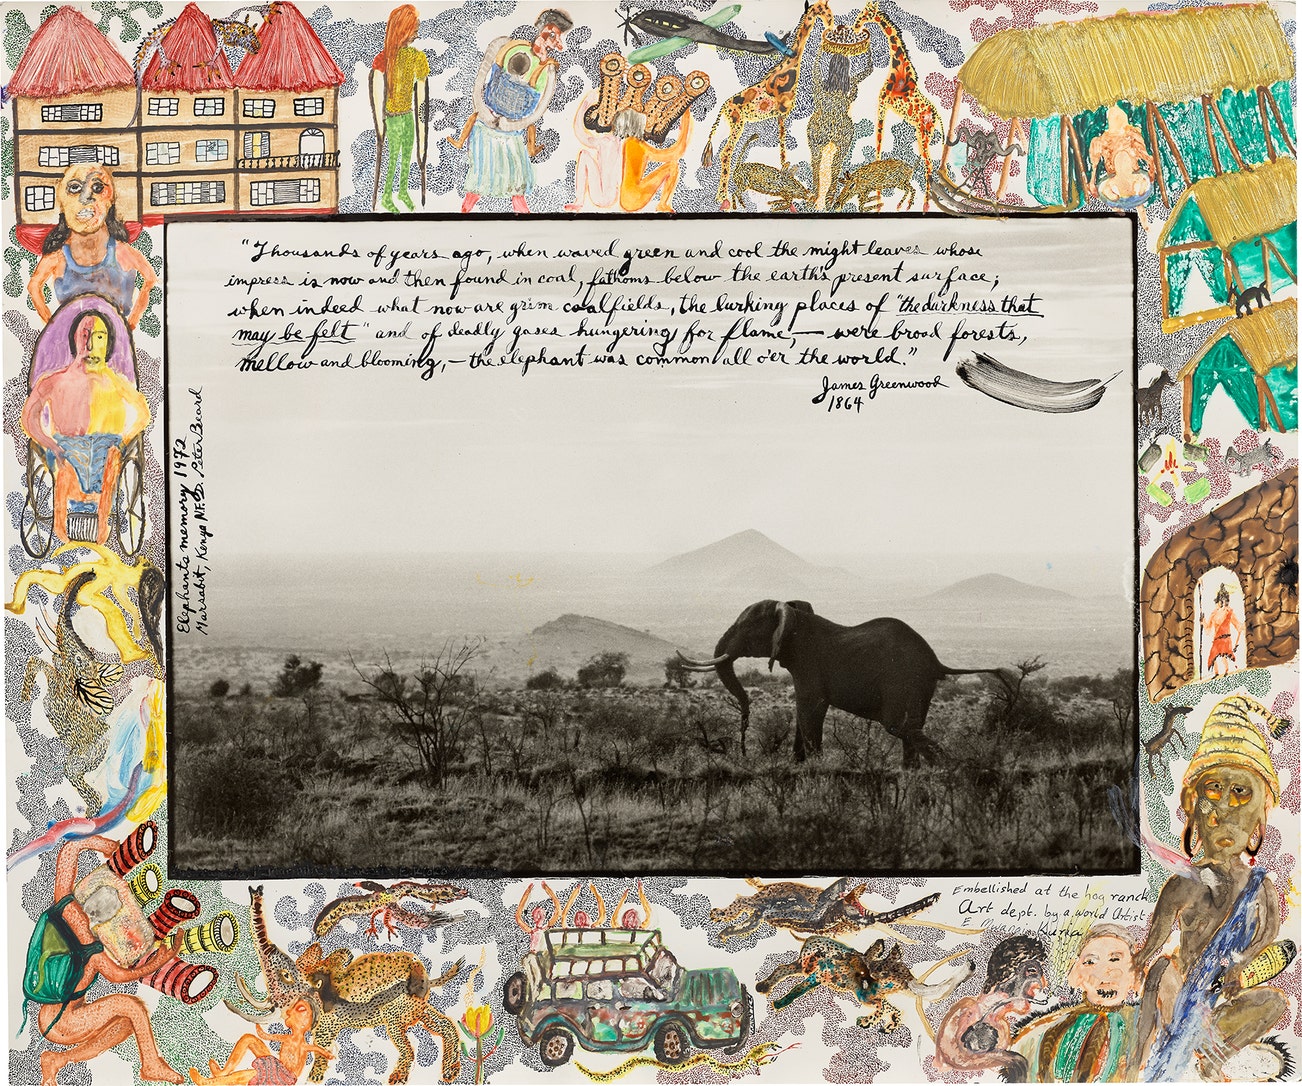 "Thousands of years ago, when waved green and cool the might leaves whose
impress is now and then found in coal, fathoms below the earth's present surface;
when indeed what now are grim coalfields, the lurking places of "the darkness that
may be felt" and of deadly gases hungering for flame, — were broad forests,
mellow and blooming, — the elephant was common all o'er the world."
James Greenwood
1864
Elephants memory 1972
Marsabit, Kenya N.F.D. Peter Beard
Embellished at the hog ranch
Art dept. by a world Artist
E